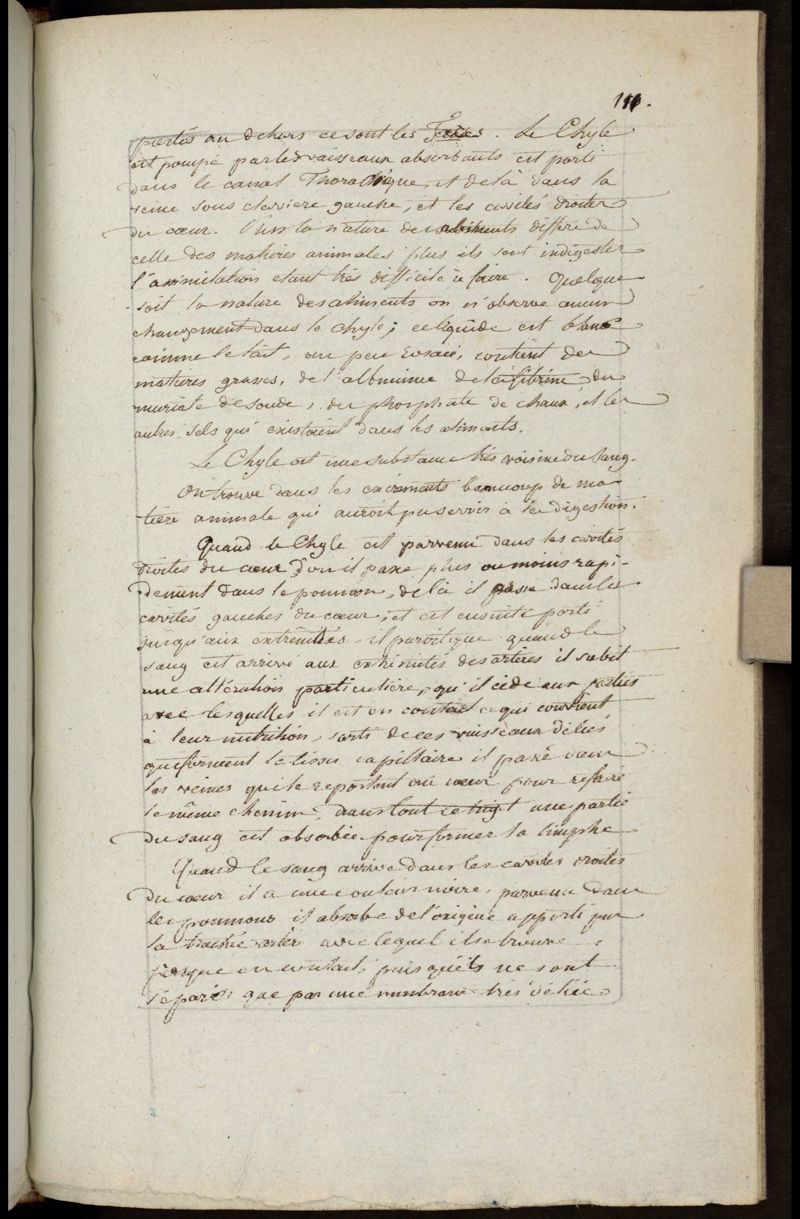 portés au dehors ce sont les Feces. Le Chyle
est pompé par les vaisseaux absorbants est porté
dans le canal Thorachique, et de là dans la
veine sous claviere gauche, et les cavités droites
du cœur. Plus la nature des aliments differe de
celle des matieres animales plus ils sont indigestes
l'assimilation etant très difficile à faire. Quelque
soit la nature des aliments on n'observe aucun
changement dans le chyle; ce liquide est blanc
comme le lait, un peu rosacé, contient des
matieres grasses, de l'albumine de la fibrine, du
muriate de soude, du phosphate de chaux, et les
autres sels qui existoient dans les aliments.
Le Chyle est une substance très voisine du sang.
On trouve dans les excréments beaucoup de ma-
tière animale qui auroit pu servir à la digestion.
Quand le Chyle est parvenu dans les cavités
droites du cœur d'où il passe plus ou moins rapi-
dement dans le poumon, de là il passe dans les
cavités gauches du cœur, et est ensuite porté
jusqu'aux extrémités. il paroit que quand le
sang est arrivé aux extrémités des artères il subit
une altération particulière, qu'il cède aux parties
avec lesquelles il est en contact ce qui convient
à leur nutrition, sorti de ces vaisseaux déliés
qui forment le tissu capillaire il passe dans
les veines qui le reportent au cœur pour refaire
le même chemin, dans tout ce trajet une partie
du sang est absorbée pour former la limphe
Quand le sang arrive dans les cavités droites
du cœur il a une couleur noire, parvenu dans
les poumons il absorbe de l'origène apporté par
la trachée artère avec lequel il se trouve
presque en contact, puisqu'ils ne sont
séparés que par une membrane très déliée.